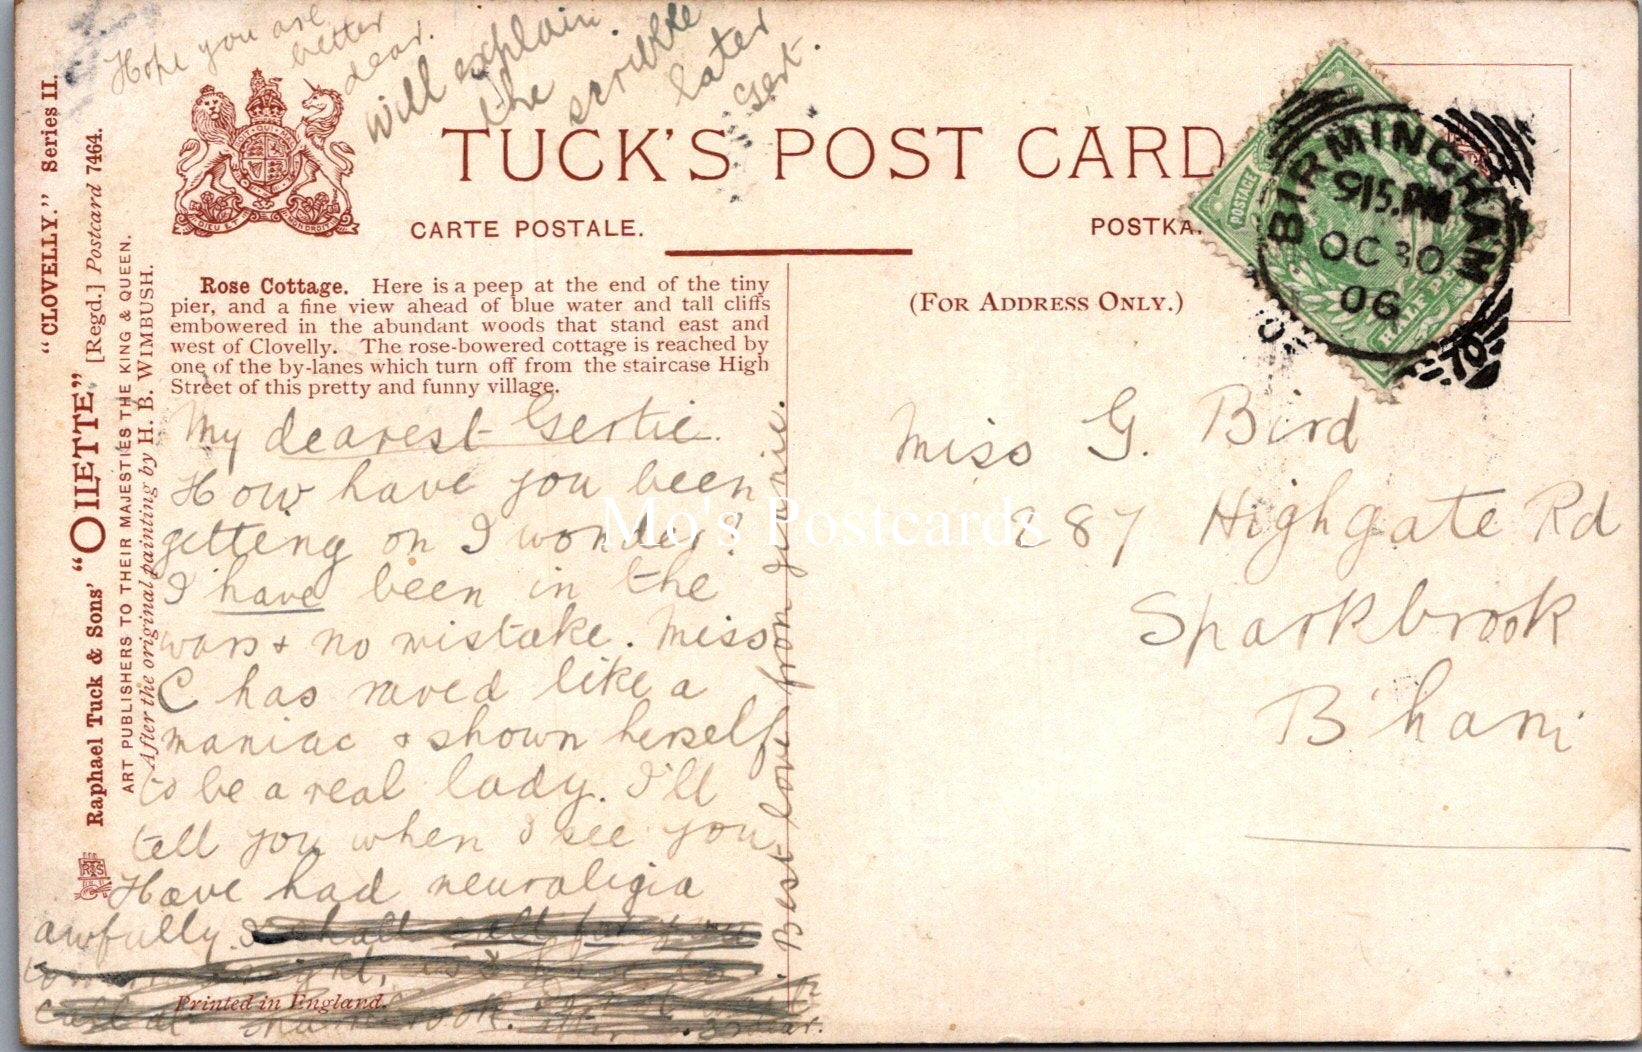 Hope you are
better
dear.
will explain
the
scribble
later
Gert.
"CLOVELLY." Series II.
Raphael Tuck & Sons' "OILETTE" [Regd.] Postcard 7464.
ART PUBLISHERS TO THEIR MAJESTIES THE KING & QUEEN.
After the original painting by H. B. WIMBUSH.
TUCK'S POST CARD
CARTE POSTALE.
POSTKA
(FOR ADDRESS ONLY.)
POSTAGE
HALF PE
BIRMINGHAM
915.PM
OC 30
06
70
Rose Cottage. Here is a peep at the end of the tiny
pier, and a fine view ahead of blue water and tall cliffs
embowered in the abundant woods that stand east and
west of Clovelly. The rose-bowered cottage is reached by
one of the by-lanes which turn off from the staircase High
Street of this pretty and funny village.
My dearest Gertie.
How have you been
getting on I wonder?
I have been in the
wars & no mistake. Miss
C has raved like a
maniac & shown herself
to be a real lady. I'll
tell you when I see you
Have had neuraligia
awfully. I shall call for you
night,
call at
Best love from
Printed in England.
Miss G. Bird
287 Highgate Rd
Sparkbrook
B'ham
Mo's Postcards